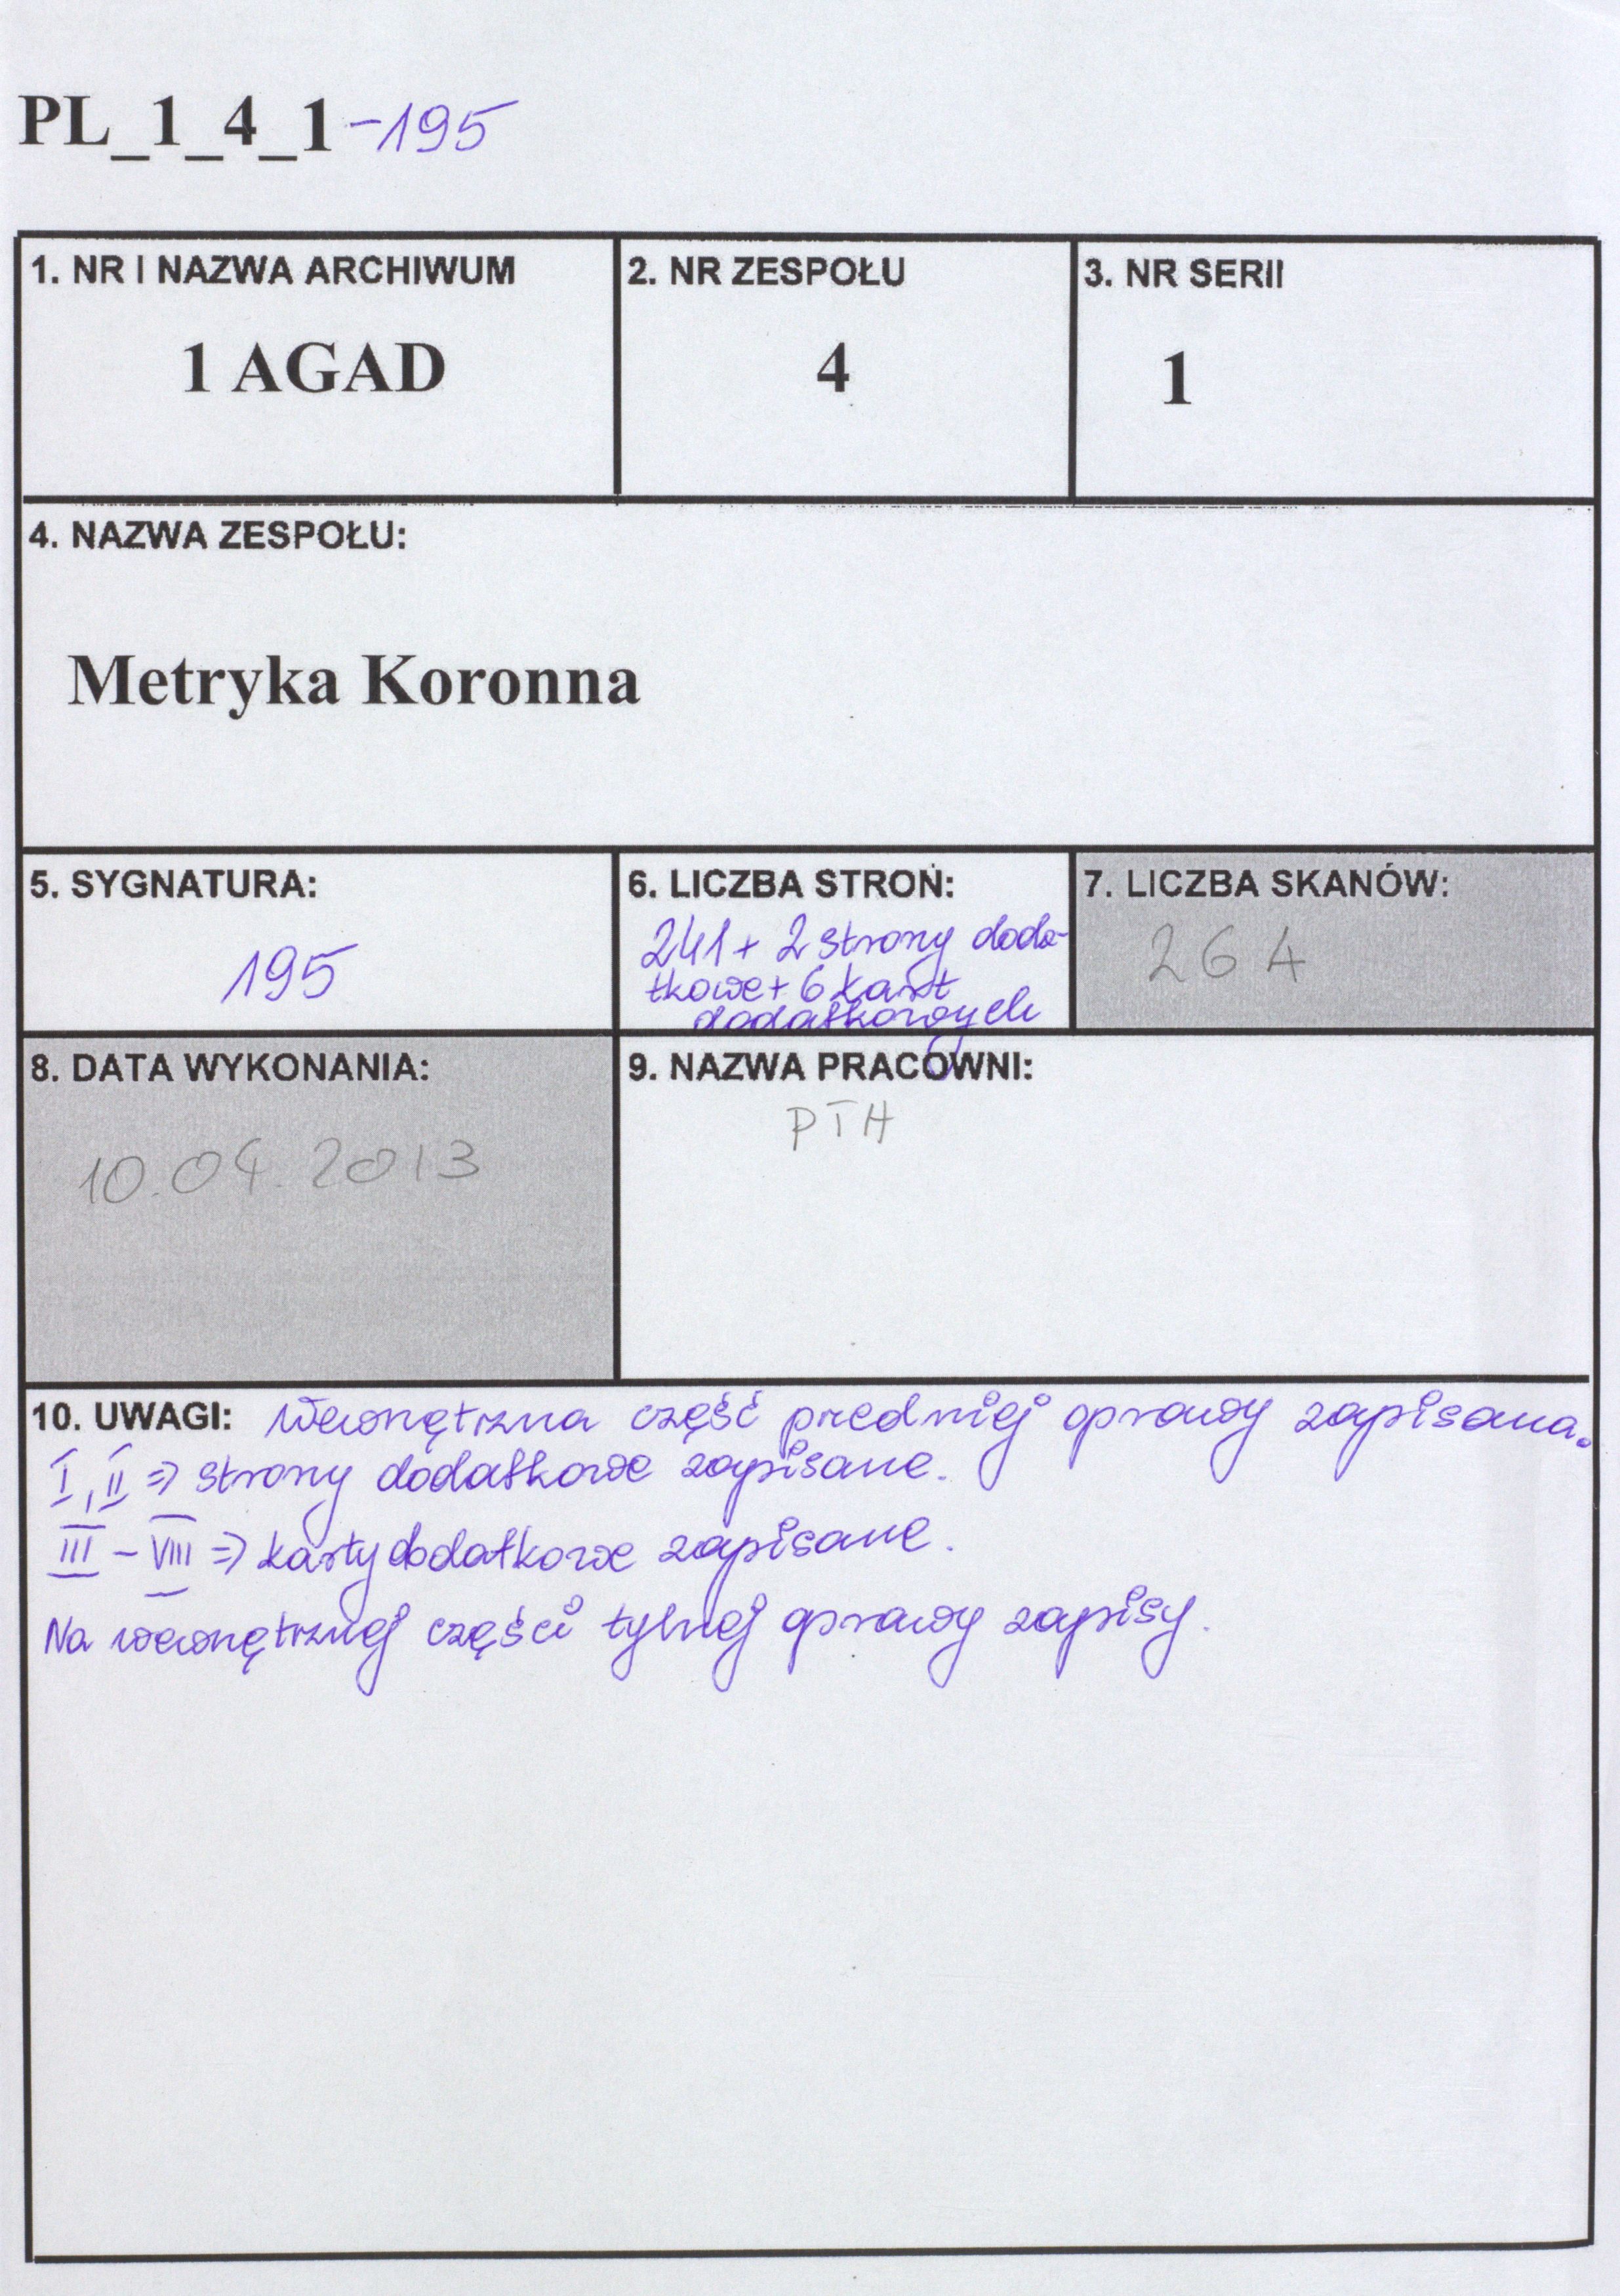 PL_1_4_1-195
1. NR I NAZWA ARCHIWUM
1 AGAD
2. NR ZESPOŁU
4
3. NR SERII
1
4. NAZWA ZESPOŁU:
Metryka Koronna
5. SYGNATURA:
195
6. LICZBA STRON:
241 + 2 strony doda-
tkowe + 6 kart
dodatkowych
7. LICZBA SKANÓW:
264
8. DATA WYKONANIA:
10.04.2013
9. NAZWA PRACOWNI:
PTH
10. UWAGI: Wewnętrzna część przedniej oprawy zapisana.
I, II => strony dodatkowe zapisane.
III - VIII => karty dodatkowe zapisane.
Na wewnętrznej części tylnej oprawy zapisy.